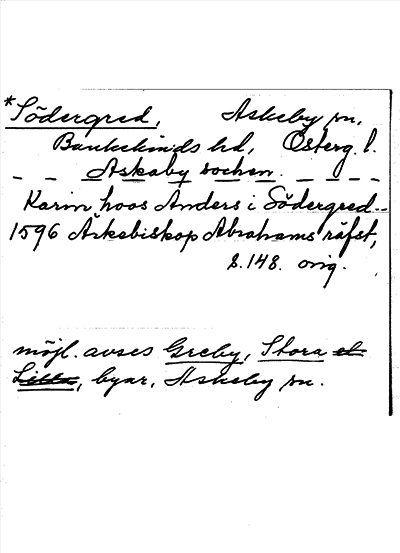 *Södergred, Askeby sn,
Bankekinds hd, Österg. l.
_ _ Askaby sochen. _ _ _ _
Karin hoos Anders i Södergred--
1596 Ärkebiskop Abrahams räfst,
s. 148. orig.
möjl. avses Greby, Stora el
Lilla, byar, Askeby sn.